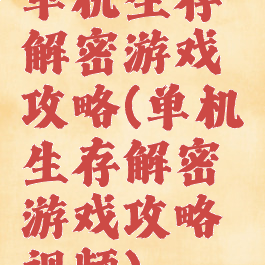 单机生存
解密游戏
攻略(单机
生存解密
游戏攻略
视频)